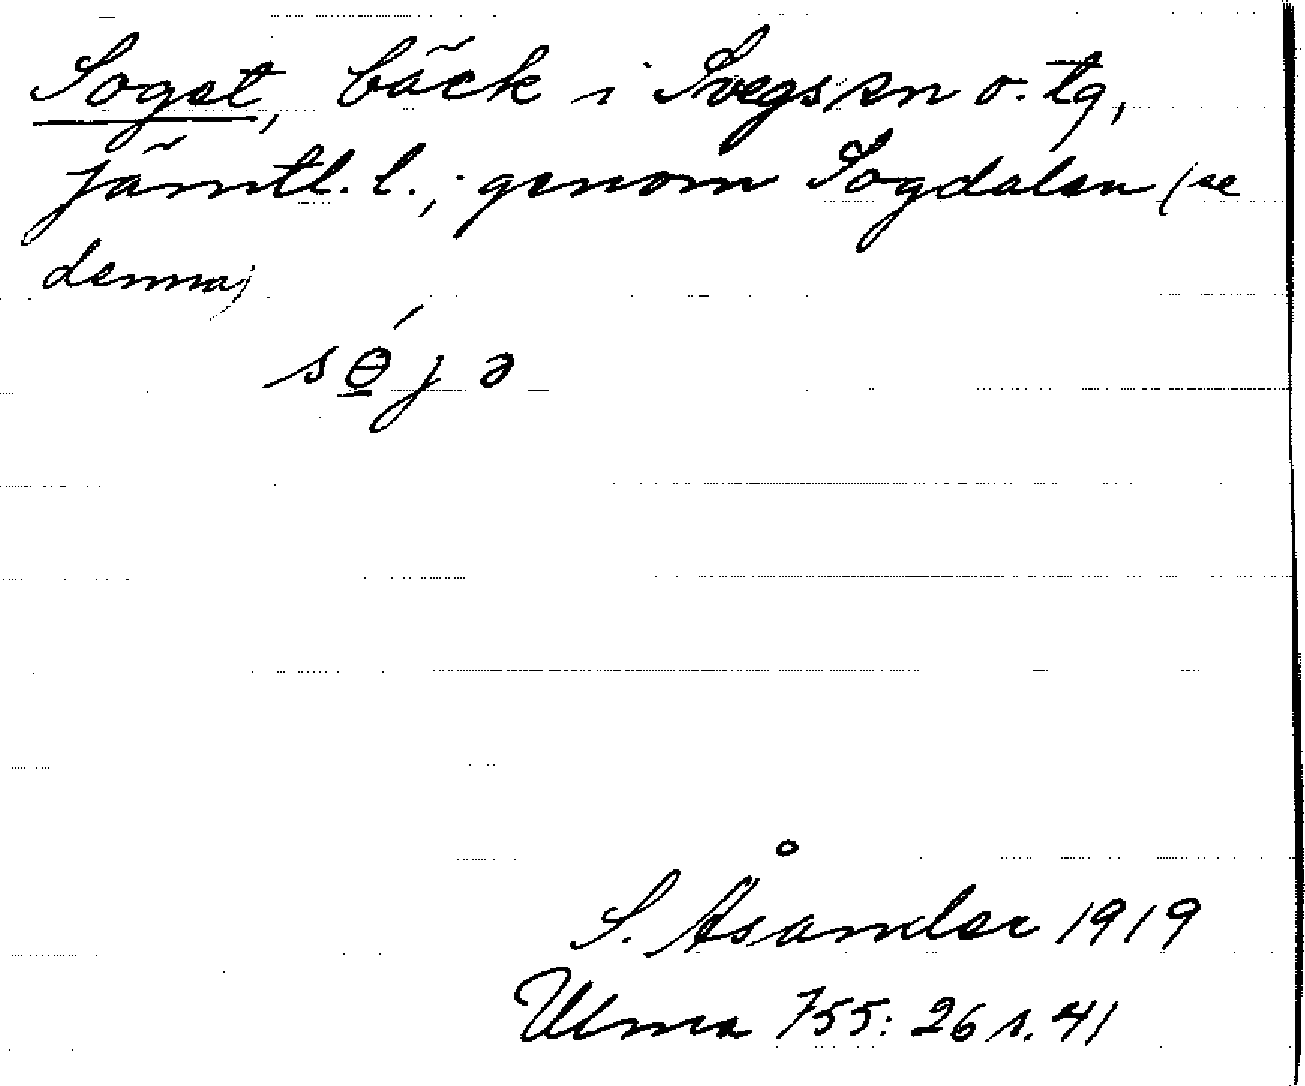 Soget, bäck i Svegs sn o. tg,
Jämtl. l.; genom Sogdalen (se
denna)
sө̲́jə
S. Åsander 1919
Ulma 755: 26 s. 41